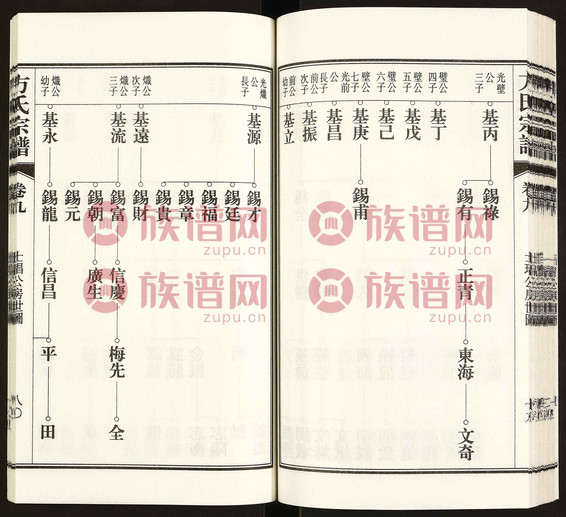 方氏宗譜
卷九
光壁公三子
基丙
錫祿
錫有
正青
東海
文奇
壁公四子
基丁
壁公五子
基戊
壁公六子
基己
壁公七子
基庚
錫甫
光前公長子
基昌
前公次子
基振
前公幼子
基立
光熾公長子
基源
錫才
錫廷
錫福
錫章
錫貴
熾公次子
基遠
錫財
熾公三子
基流
錫富
信慶
梅先
全
錫朝
廣生
錫元
熾公幼子
基永
錫龍
信昌
平
田
方氏宗譜
卷九
八〇
族谱网
zupu.cn
族谱网
zupu.cn
族谱网
zupu.cn
族谱网
zupu.cn